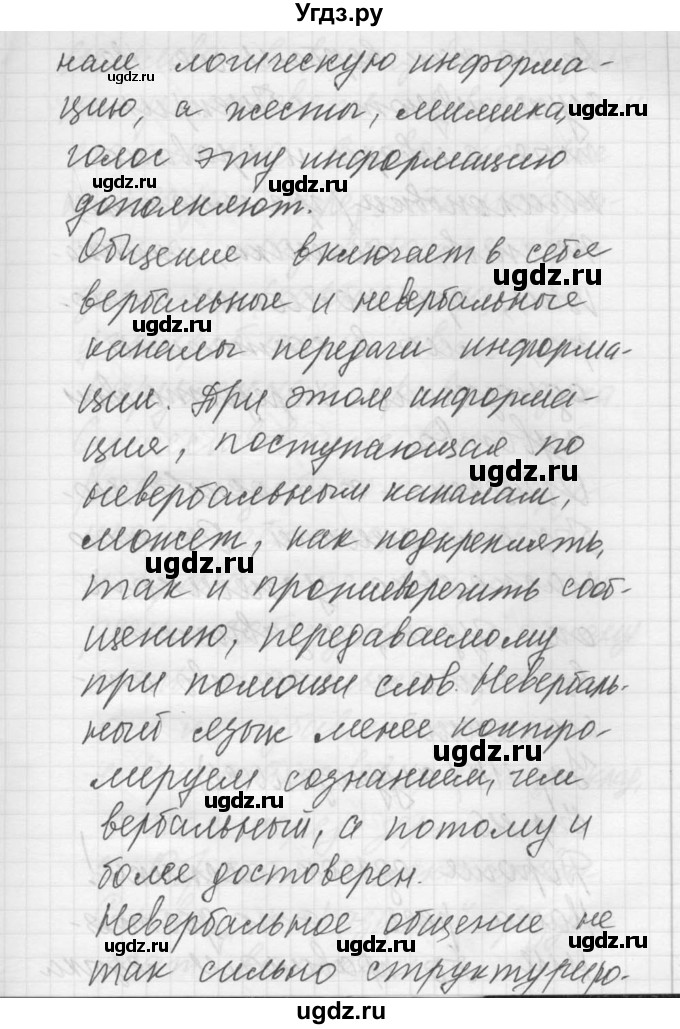 Угдз.ру
нам логическую информа-
ugdz.ru ugdz.ru
цию, а жесты, мимика,
ugdz.ru
голос эту информацию
ugdz.ru ugdz.ru
дополняют.
Общение включает в себя
ugdz.ru
вербальные и невербальные
ugdz.ru
каналы передачи информа-
ции. При этом информа-
ция, поступающая по
ugdz.ru
невербальным каналам,
может, как подкреплять,
ugdz.ru
так и противоречить сооб-
щению, передаваемому
при помощи слов. Неверваль-
ный язык менее контро-
ugdz.ru
лируем сознанием, чем
ugdz.ru
вербальный, а потому и
более достоверен.
Невербальное общение не
ugdz.ru ugdz.ru ugdz.ru
так сильно структуриро-
ugdz.ru